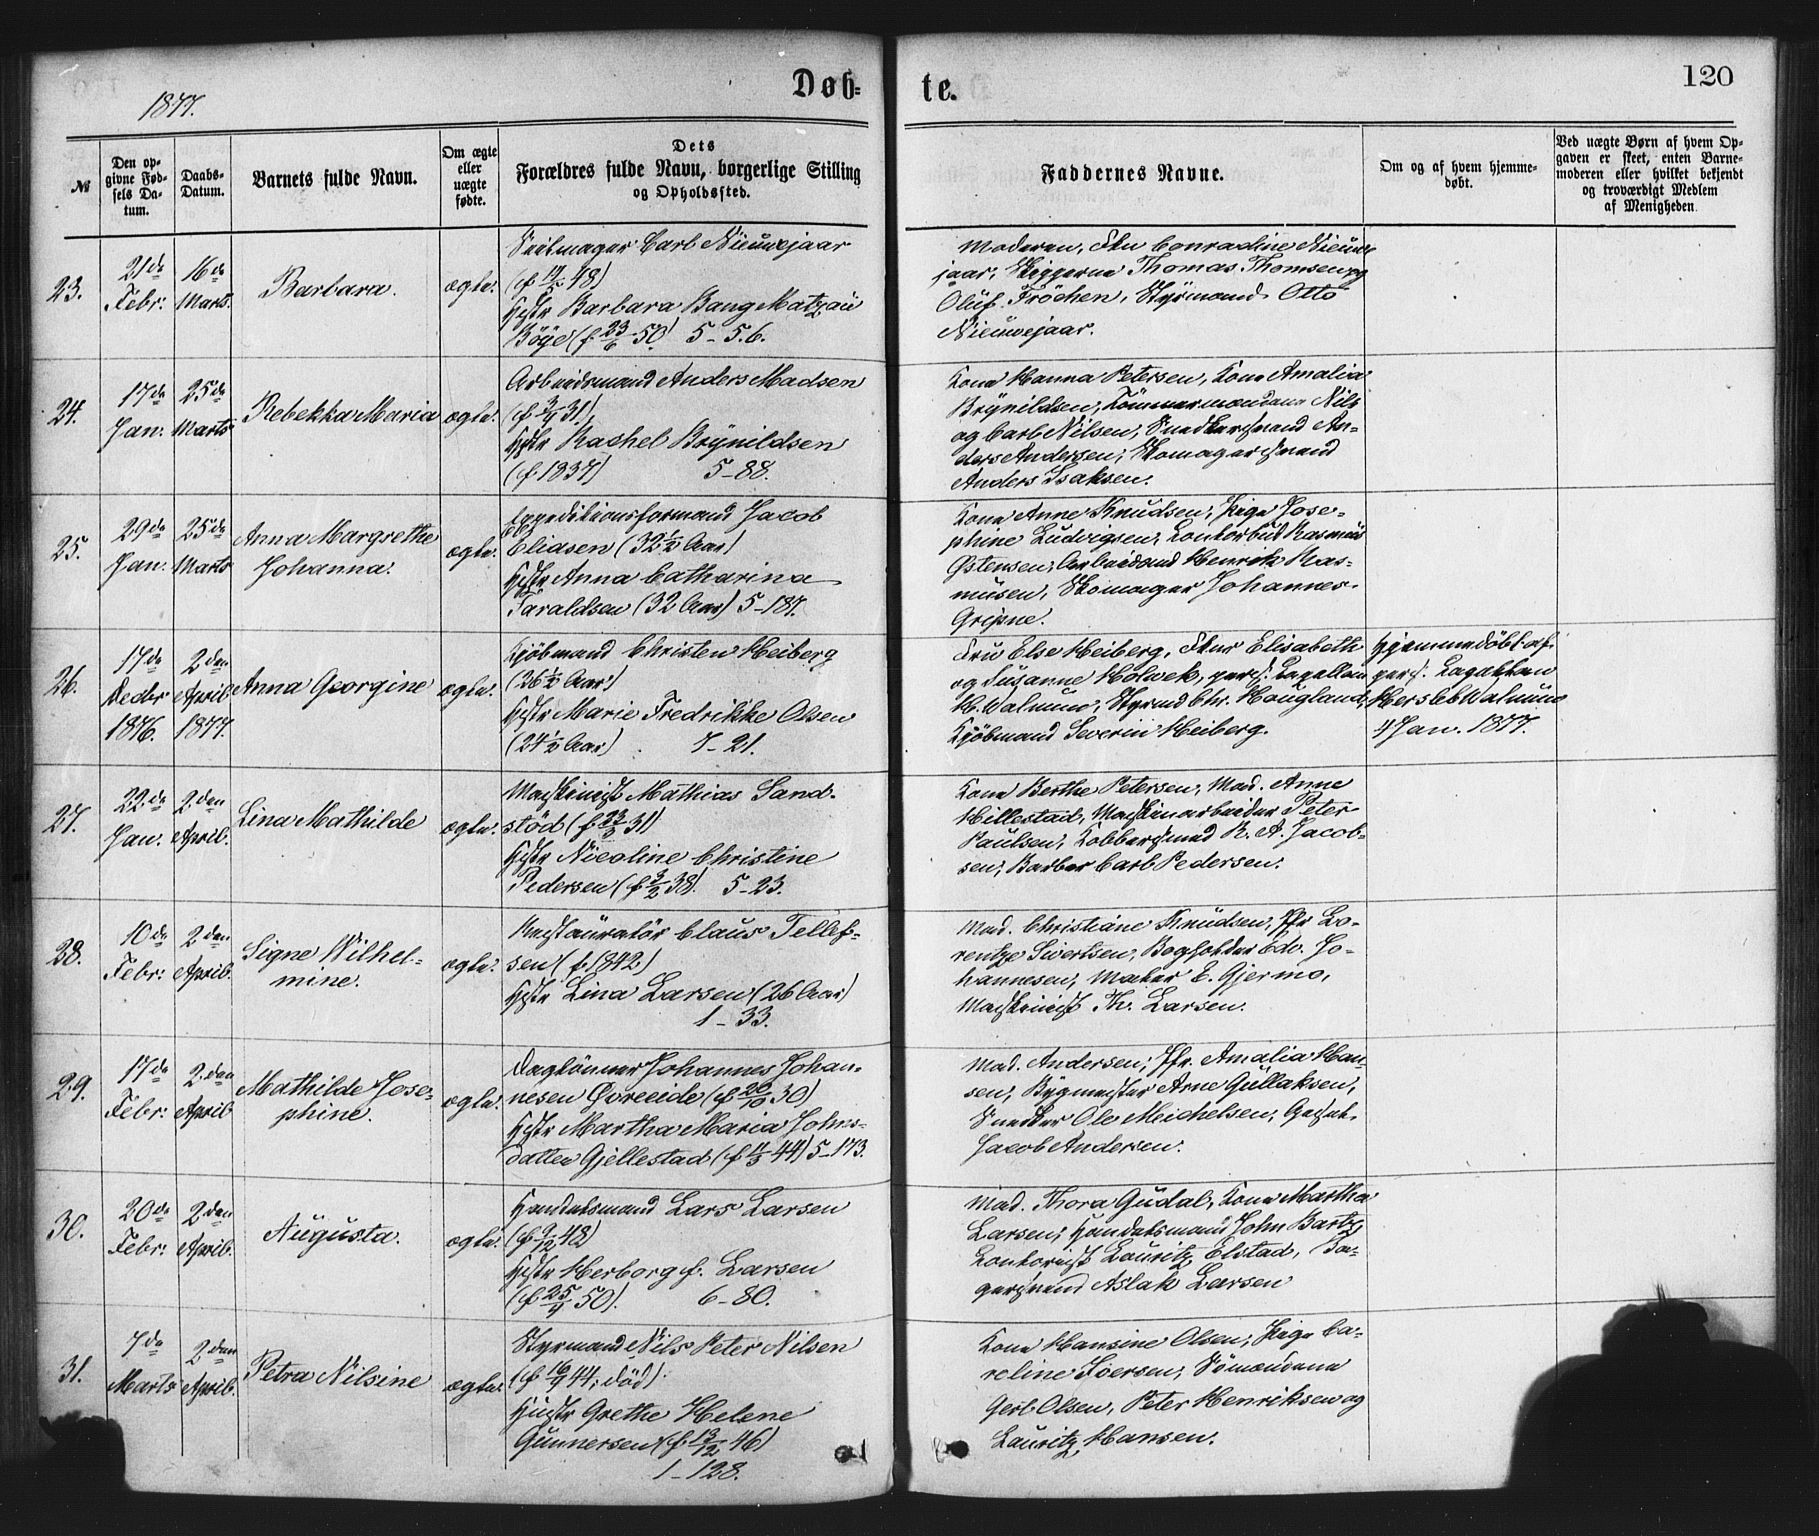 1877.
Døb-
te.
120
№
Den op-
givne Fød-
sels Da-
tum.
Daabs-
Datum.
Barnets fulde Navn.
Om ægte
eller
uægte
fødte.
Dets
Forældres fulde Navn, borgerlige Stilling
og Opholdssted.
Faddernes Navne.
Om og af hvem hjemme-
døbt.
Ved uægte Børn af hvem Op-
gaven er skeet, enten Barne-
moderen eller hvilket bekjendt
og troværdigt Medlem
af Menigheden
23.
21de
Febr:
16de
Marts.
Barbara.
ægte.
Seilmager Carl Nieuwejaar
48)
Hstr Barbara Bang Matzau
Böye (f. 23/6 50) 5-56.
Moderen, Conradine Nieuwe
jaar, Skiggerne Thomas Thomsen og
Oluf Fröchen, Styrmand Otto
Nieuwejaar.
24.
17de
Jan.
25de
Marts
Rebekka Maria
ægte.
Arbeidsmand Anders Madsen
31)
Hstr Rachel Brynildsen
(f. 1837) 5-88.
Kone Hanna Petersen, Kone Amalia
Brynildsen, Tömmermændene Nils
og Carl Nilsen, Snedkersvend An-
ders Andersen, Skomagersvend
Anders Isaksen.
25.
29de
Jan.
25de
Marts
Anna Margrethe
Johanna.
ægte.
Expeditionsformand Jacob
Eliasen (32½ Aar)
Hstr Anna Catharina
Taraldsen (32 Aar) 5-187.
Kone Anne Knudsen, Pige Jose-
phine Ludvigsen, Kontorbud Rasmus
Østensen, Arbeidsmd Henrik Ras-
musen, Skomager Johannes
Gripne.
26.
17de
Decbr
1876.
2den
April
1877.
Anna Georgine
ægte.
Kjöbmand Christen Heiberg
(26½ Aar)
Hstr Marie Fredrikke Olsen
(24½ Aar) 7-21.
Fru Else Heiberg, Elisabeth
og Susanne Holwek, pers. Kapellan
H. Walnum, Styrmd Chr. Hougland,
Kjöbmand Severin Heiberg.
Hjemmedöbt af
pers. Kapellan
Hersleb Walnum
4 Jan. 1877.
27.
22de
Jan.
2den
April.
Lina Mathilde
ægte.
Maskinist Mathias Sand-
stöd (f. 31)
Hstr Nicoline Christine
Pedersen (f. 3/2 38). 5-23.
Kone Berthe Petersen, Mad. Anne
Hillestad, Maskinarbeider Peter
Paulsen, Kobbersmed R. A. Jacob-
sen, Barber Carl Pedersen.
28.
10de
Febr:
2den
April.
Signe Wilhel-
mine.
ægte.
Restauratör Claus Tellef-
sen (f. 1842)
Hstr Lina Larsen (26 Aar)
1-33.
Mad. Christiane Knudsen, Jfr Lo-
rentze Sivertsen, Bogholder Edv. Jo-
hannesen, Maler E. Gjermo,
Maskinist Th. Larsen.
29.
17de
Febr:
2den
April
Mathilde Jose-
phine.
ægte.
Daglönner Johannes Johan-
nesen Øvreeide (f. 20/10 30)
Hstr Martha Maria Johns-
datter Gjellestad (f. 11/3 44) 5-173.
Mad. Andersen, Jfr. Amalia Han-
sen, Bygmester Arne Gullaksen,
Snedker Ole Michelsen,
Jacob Andersen.
30.
20de
Febr:
2den
April.
Augusta.
ægte.
Handelsmand Lars Larsen
(f. 9/12 48)
Hstr Herborg f. Larsen
(f. 25/4 50). 6-80.
Mad. Thora Gudal, Kone Martha
Larsen, Handelsmand John Bartz,
Kontorist Lauritz Elstad, Ba-
gersvend Aslak Larsen
31.
7de
Marts
2den
April.
Petra Nilsine
ægte.
Styrmand Nils Peter Nilsen
(f. 16/9 44, död).
Hustr Grethe Helene
Gunnersen (f. 13/12 46)
1-128.
Kone Hansine Olsen, Pige Ca-
roline Iversen, Sömændene
Gerb Olsen, Peter Henriksen og
Lauritz Hansen.